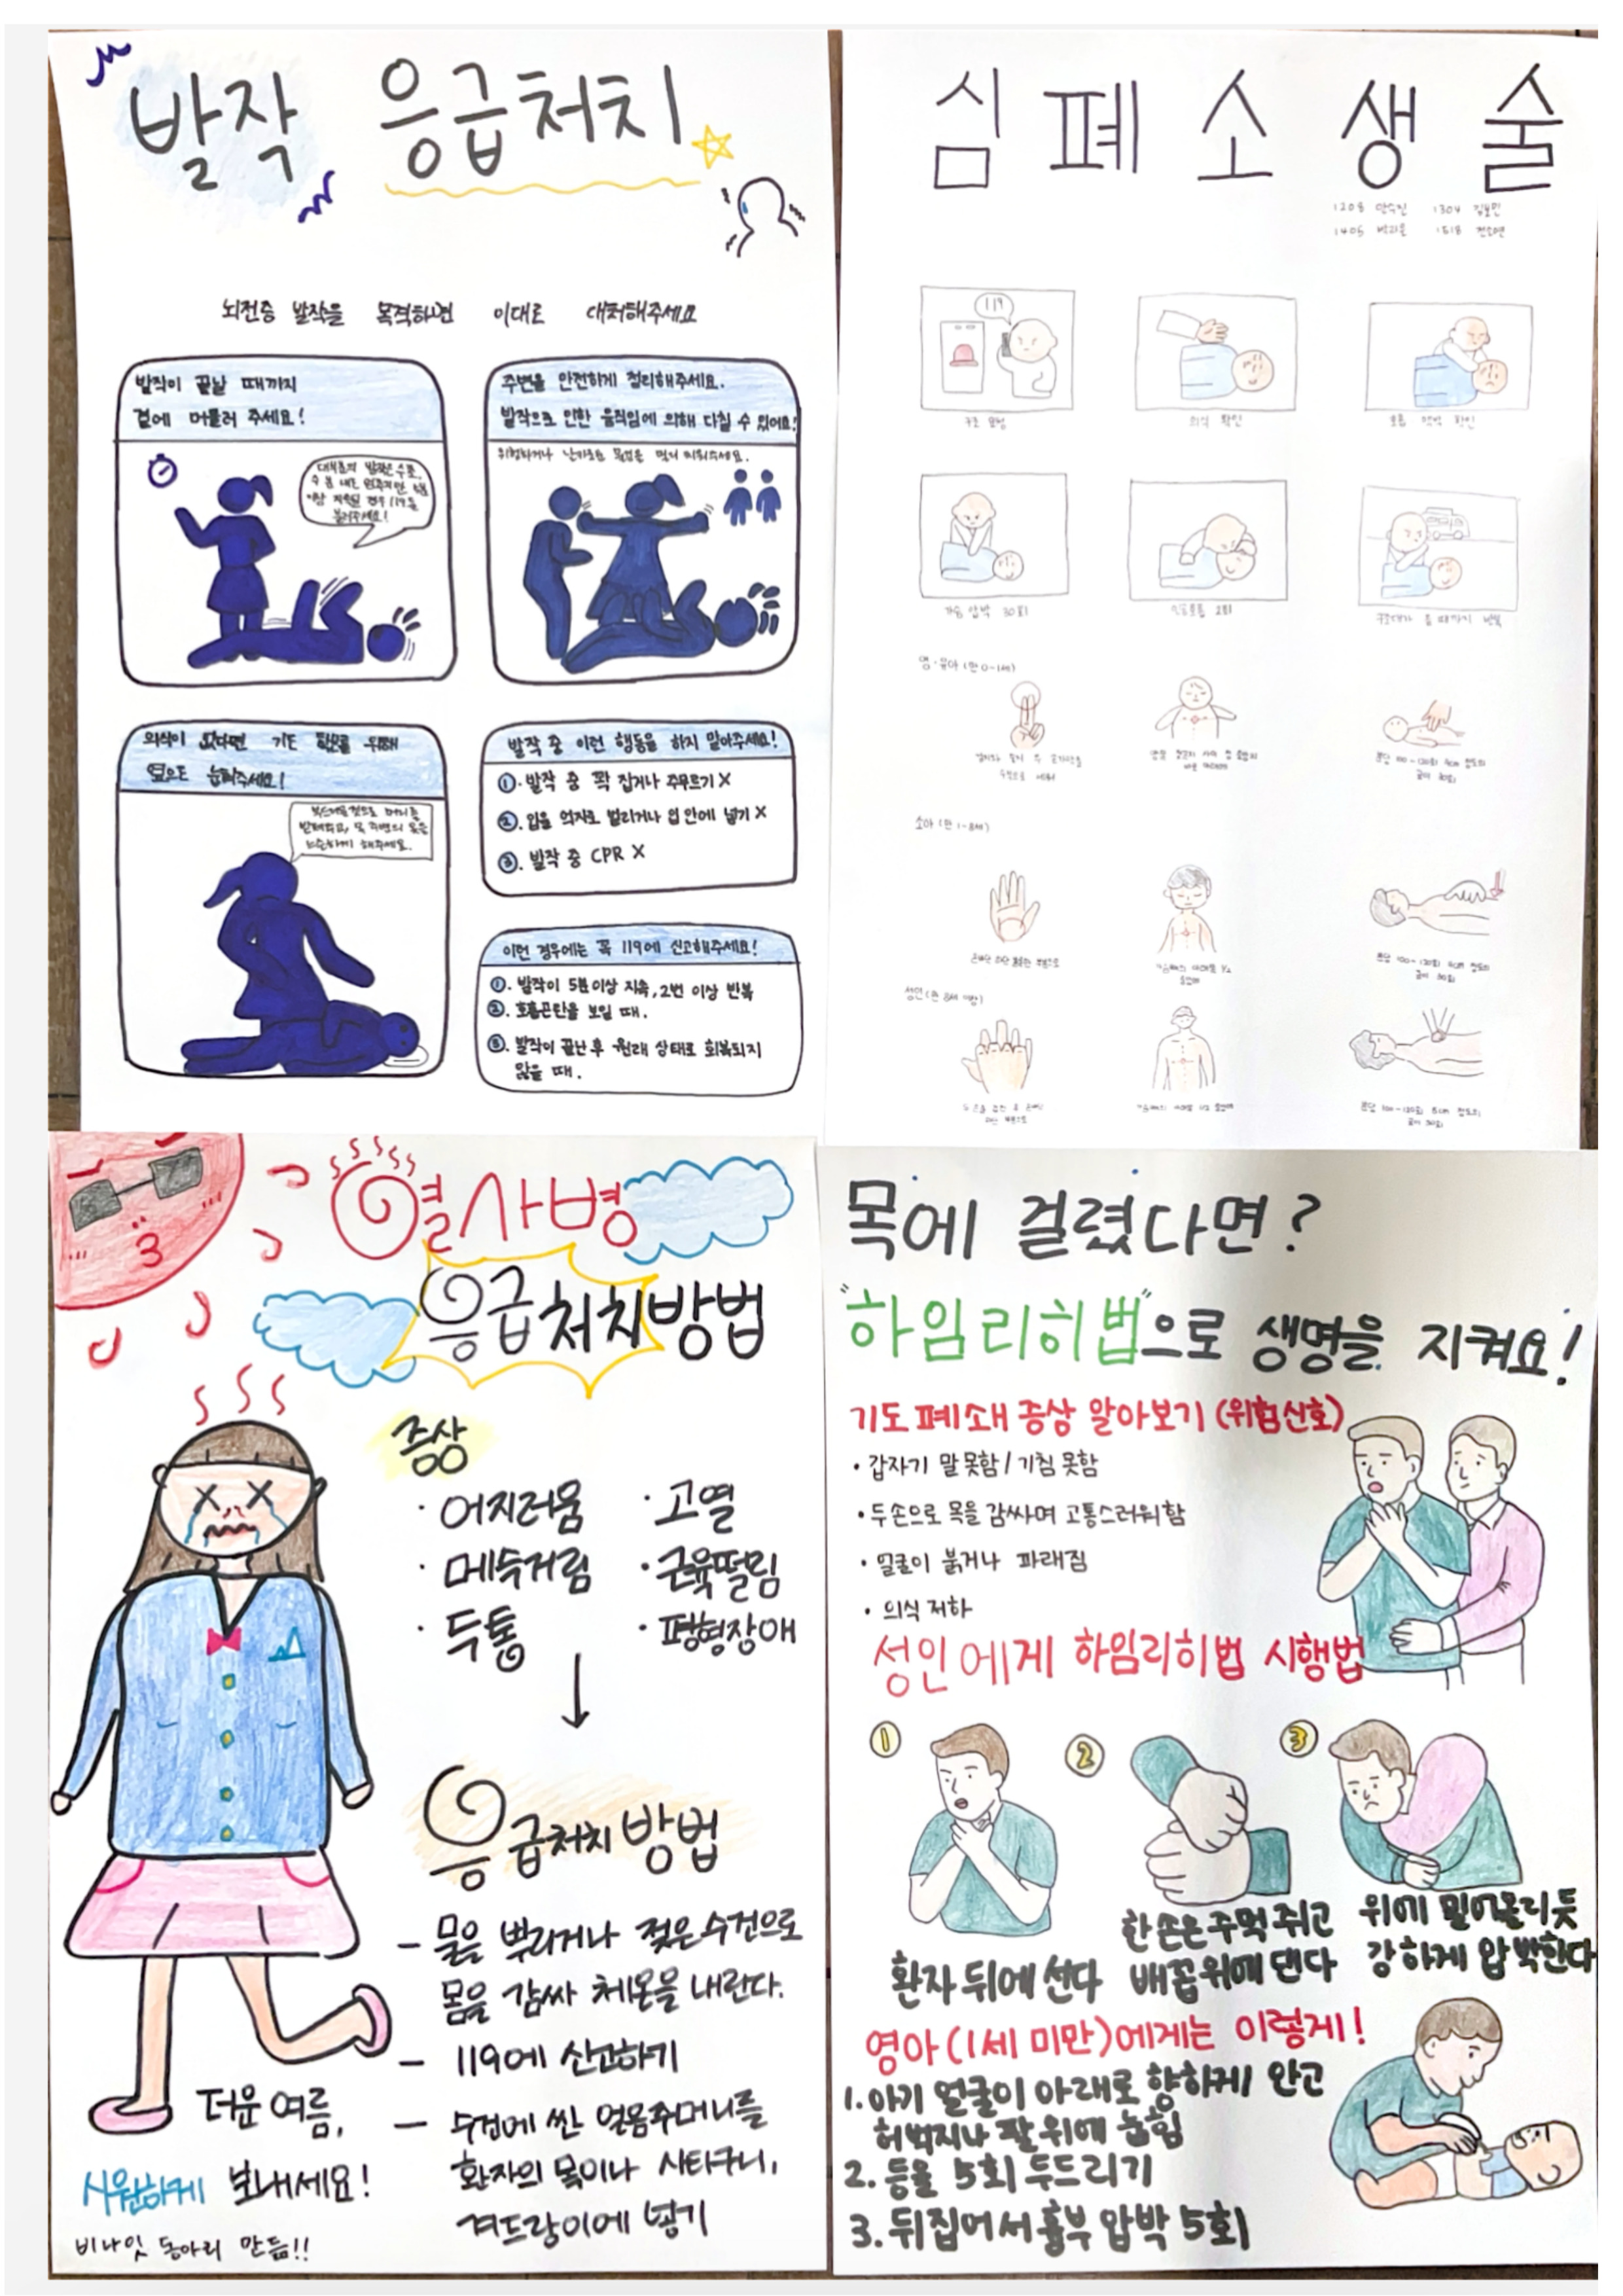 발작 응급처치
뇌전증 발작을 목격하면 이대로 대처해주세요
발작이 끝날 때까지
곁에 머물러 주세요!
대부분의 발작은 수초,
수 분 내로 멈추지만 5분
이상 지속될 경우 119를
불러주세요!
주변을 안전하게 정리해주세요.
발작으로 인한 움직임에 의해 다칠 수 있어요!
위험하거나 날카로운 물건은 먼저 치워주세요.
의식이 없다면 기도 확보를 위해
옆으로 눕혀주세요!
부드러운 것으로 머리를
받쳐주고, 목 주변의 옷은
느슨하게 해주세요.
발작 중 이런 행동을 하지 말아주세요!
①. 발작 중 꽉 잡거나 주무르기 X
②. 입을 억지로 벌리거나 입 안에 넣기 X
③. 발작 중 CPR X
이런 경우에는 꼭 119에 신고해주세요!
①. 발작이 5분 이상 지속, 2번 이상 반복
②. 호흡곤란을 보일 때.
③. 발작이 끝난 후 원래 상태로 회복되지
않을 때.
심폐소생술
1208 1304
1405 1518
119
구조 요청
의식 확인
호흡 맥박 확인
가슴 압박 30회
인공호흡 2회
구조대가 올 때까지 반복
영·유아 (만 0-1세)
분당 100-120회 4cm 정도의
깊이 30회
소아 (만 1-8세)
손바닥 아랫 부분으로
분당 100-120회 5cm 정도의
깊이 30회
성인 (만 8세 이상)
분당 100-120회 5cm 정도의
깊이 30회
열사병
응급처치방법
증상
· 어지러움 · 고열
· 메슥거림 · 근육떨림
· 두통 · 평형장애
응급처치 방법
- 물을 뿌리거나 젖은 수건으로
몸을 감싸 체온을 내린다.
- 119에 신고하기
- 수건에 싼 얼음주머니를
환자의 목이나 사타구니,
겨드랑이에 넣기
더운 여름,
시원하게 보내세요!
비나잇 동아리 만듦!!
목에 걸렸다면?
"하임리히법"으로 생명을 지켜요!
기도 폐쇄 증상 알아보기 (위험신호)
· 갑자기 말 못함 / 기침 못함
· 두 손으로 목을 감싸며 고통스러워함
· 얼굴이 붉거나 파래짐
· 의식 저하
성인에게 하임리히법 시행법
① ② ③
환자 뒤에 선다
한 손은 주먹 쥐고
배꼽 위에 댄다
위에 밀어올리듯
강하게 압박한다
영아(1세 미만)에게는 이렇게!
1. 아기 얼굴이 아래로 향하게 안고
허벅지나 팔 위에 눕힘
2. 등을 5회 두드리기
3. 뒤집어서 흉부 압박 5회